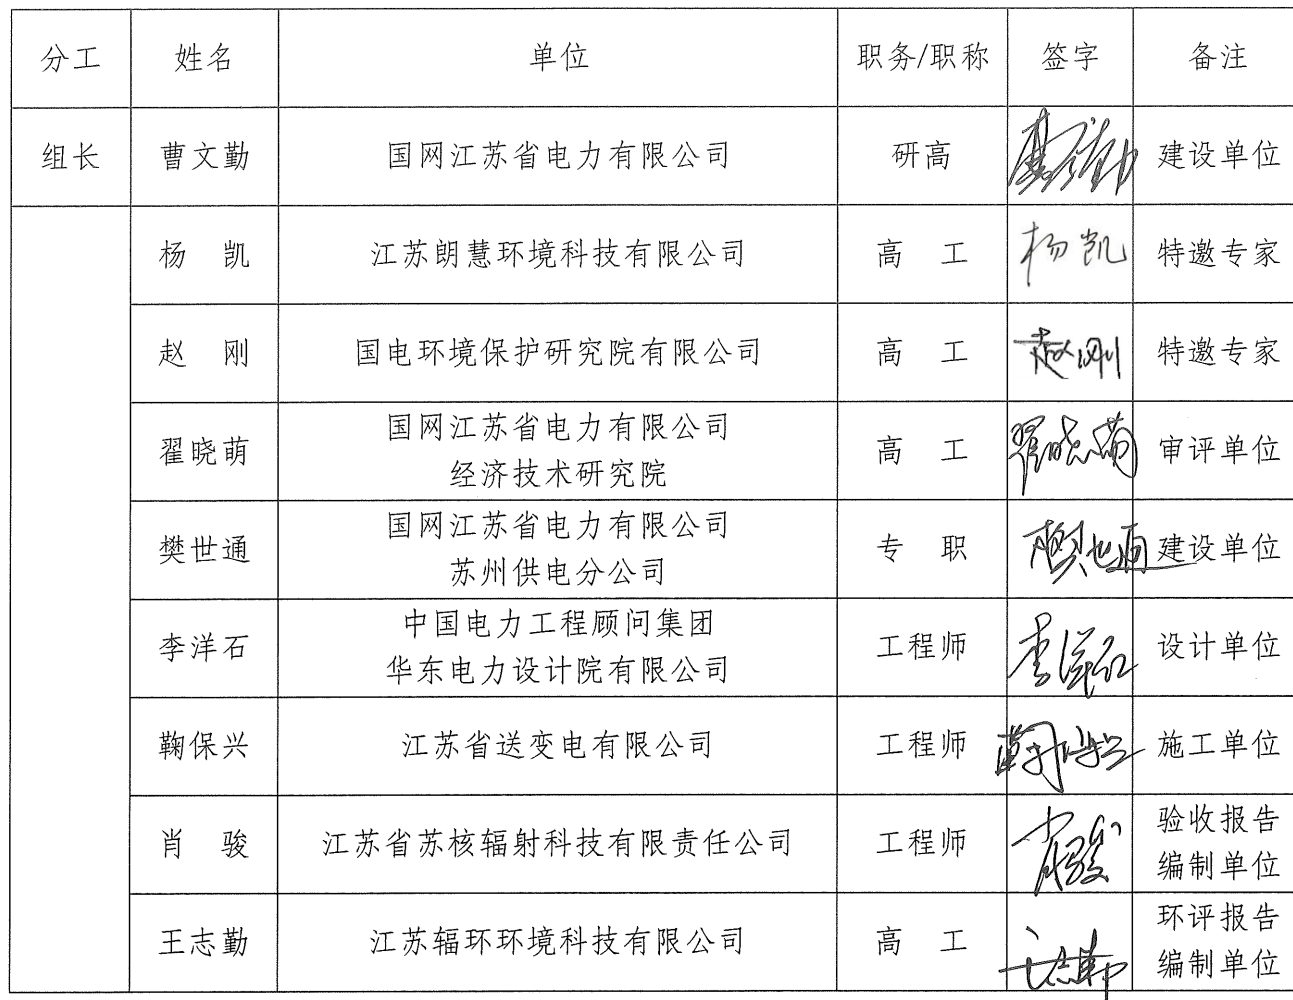 分工 姓名 单位 职务/职称 签字 备注
组长 曹文勤 国网江苏省电力有限公司 研高 曹文勤 建设单位
杨 凯 江苏朗慧环境科技有限公司 高 工 杨凯 特邀专家
赵 刚 国电环境保护研究院有限公司 高 工 赵刚 特邀专家
翟晓萌 国网江苏省电力有限公司 高 工 翟晓萌 审评单位
经济技术研究院
樊世通 国网江苏省电力有限公司 专 职 樊世通 建设单位
苏州供电分公司
李洋石 中国电力工程顾问集团 工程师 李洋石 设计单位
华东电力设计院有限公司
鞠保兴 江苏省送变电有限公司 工程师 鞠保兴 施工单位
肖 骏 江苏省苏核辐射科技有限责任公司 工程师 肖骏 验收报告
编制单位
王志勤 江苏辐环环境科技有限公司 高 工 王志勤 环评报告
编制单位